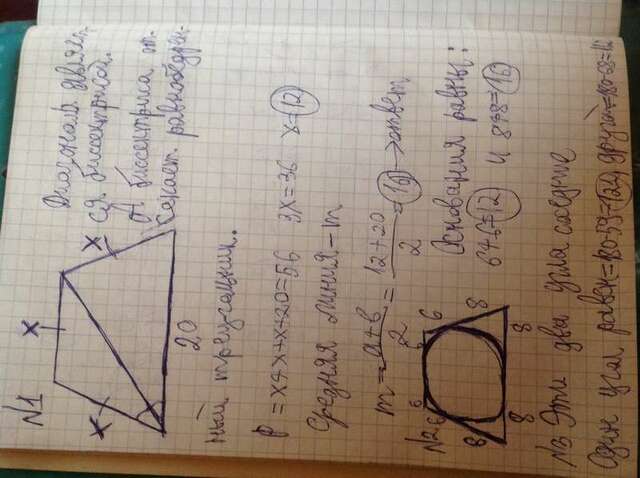 №1
x
x
x
20
Диагональ являет-
ся биссектрисой.
А биссектриса от-
секает равнобедрен-
ный треугольник.
P = x+x+x+20=56 3x=36 x=12
Средняя линия – m
m = a+b/2 = 12+20/2 = 16 → ответ
№2
6 6 6 6
8 8
8 8
Основания равны:
6+6=12 и 8+8=16
№3 Эти два угла соседние
Один угол равен =180-59=121, другой =180-68=112